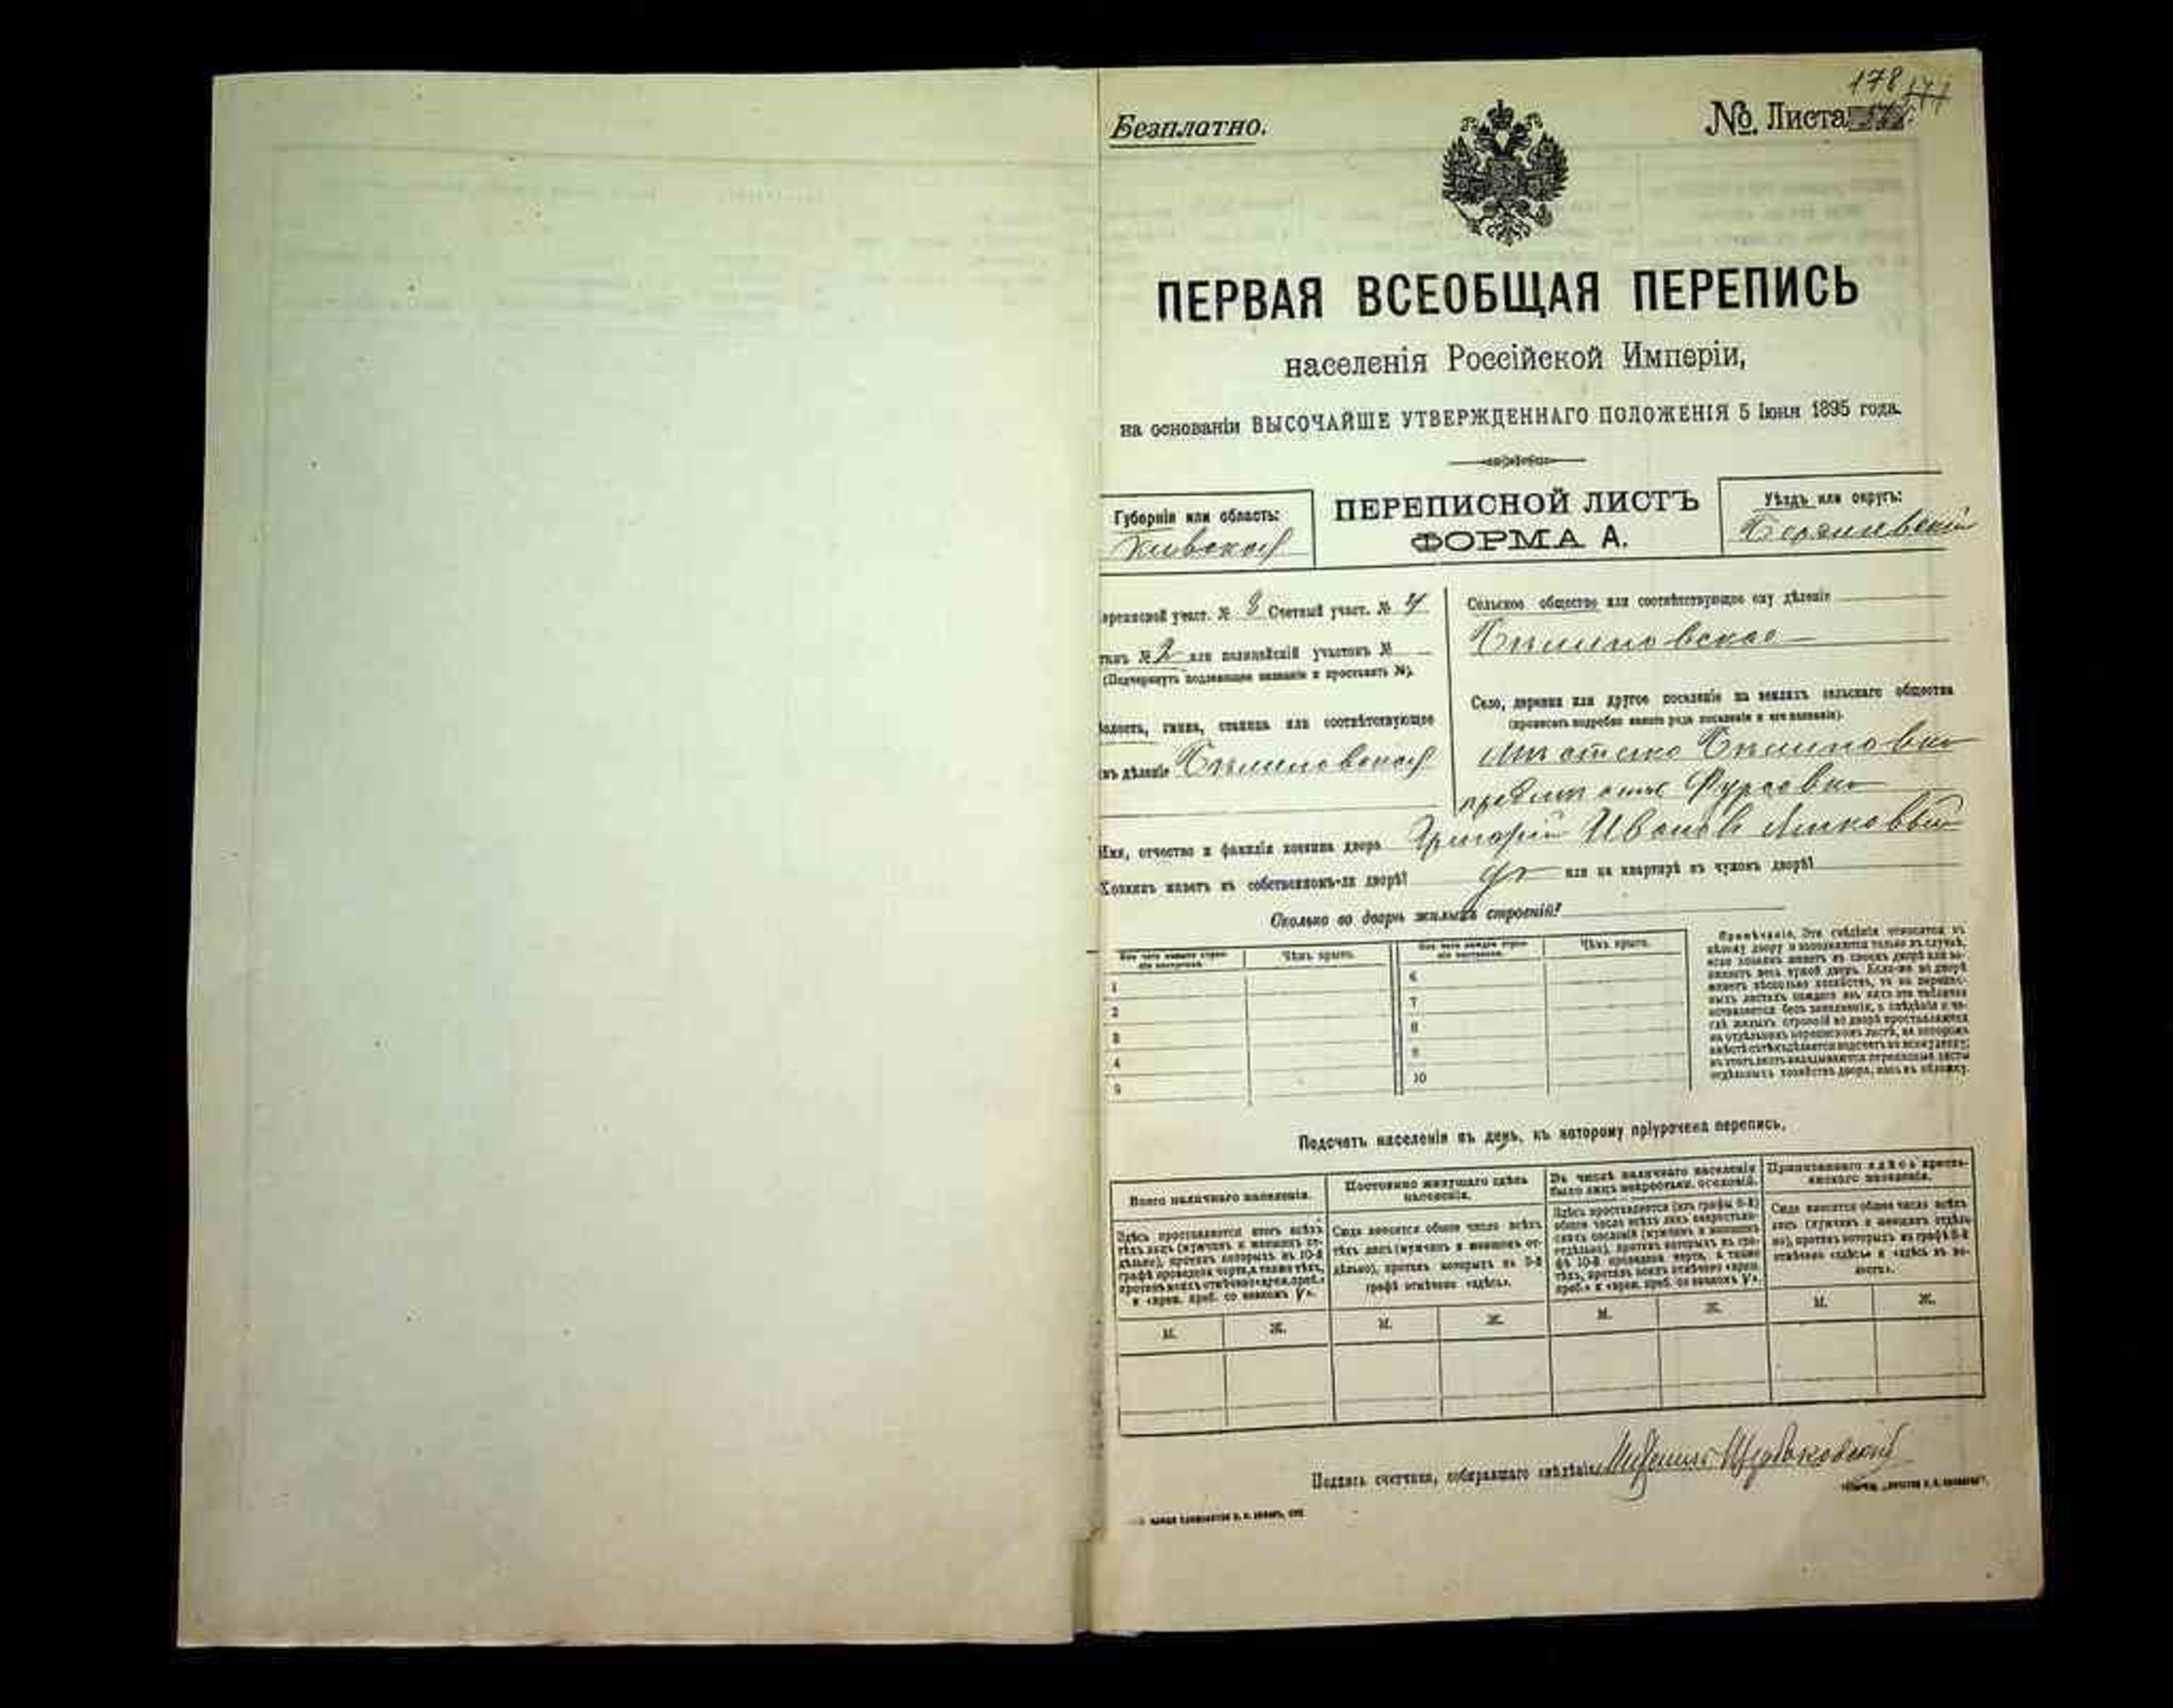 178 177
Безплатно.
№. Листа
ПЕРВАЯ ВСЕОБЩАЯ ПЕРЕПИСЬ
населенія Россійской Имперіи,
на основаніи ВЫСОЧАЙШЕ УТВЕРЖДЕННАГО ПОЛОЖЕНІЯ 5 Іюня 1895 года.
Губернія или область:
Киевская
ПЕРЕПИСНОЙ ЛИСТЪ
ФОРМА А.
Уѣздъ или округъ:
ереписной участ. № 3 Счетный участ. № 4
танъ № 2 или полицейскій участокъ №
(Подчеркнуть подлежащее названіе и проставить №).
Волость, гмина, станица или соотвѣтствующее
имъ дѣленіе
Сельское общество или соотвѣтствующее ему дѣленіе
Село, деревня или другое поселеніе на земляхъ сельскаго общества
(прописать подробно какого рода поселеніе и его названіе).
предмѣстье Фурсовка
Имя, отчество и фамилія хозяина двора Григорій Ивановъ
Хозяинъ живетъ въ собственномъ-ли дворѣ? да или на квартирѣ въ чужомъ дворѣ?
Сколько во дворѣ жилыхъ строеній?
Изъ чего каждое строеніе построено.
Чѣмъ крыто.
Изъ чего каждое строеніе построено.
Чѣмъ крыто.
1
2
3
4
5
6
7
8
9
10
Примѣчаніе. Эти свѣдѣнія относятся къ
цѣлому двору и заполняются только въ случаѣ,
если хозяинъ живетъ въ своемъ дворѣ или занимаетъ весь чужой дворъ. Если-же во дворѣ
живетъ нѣсколько хозяйствъ, то на переписныхъ листахъ каждаго изъ нихъ эта табличка
оставляется безъ заполненія, а свѣдѣнія о числѣ жилыхъ строеній во дворѣ проставляются
на отдѣльномъ переписномъ листѣ, на которомъ
вмѣстѣ съ тѣмъ дѣлается подсчетъ по всему двору;
въ этотъ листъ вкладываются переписные листы
отдѣльныхъ хозяйствъ двора, какъ въ обложку.
Подсчетъ населенія въ день, къ которому пріурочена перепись.
Всего наличнаго населенія.
Здѣсь проставляется итогъ всѣхъ
тѣхъ лицъ (мужчинъ и женщинъ отдѣльно), противъ которыхъ въ 10-й
графѣ проведена черта, а также тѣхъ,
противъ коихъ отмѣчено «врем. преб.»
и «врем. преб. со знакомъ V».
Постоянно живущаго здѣсь
населенія.
Сюда вносится общее число всѣхъ
тѣхъ лицъ (мужчинъ и женщинъ отдѣльно), противъ которыхъ въ 9-й
графѣ отмѣчено «здѣсь».
Въ числѣ наличнаго населенія
было лицъ некрестьян. сословій.
Здѣсь проставляется (изъ графы 6-й)
общее число всѣхъ лицъ некрестьянскихъ сословій (мужчинъ и женщинъ
отдѣльно), противъ которыхъ въ графѣ 10-й проведена черта, а также
тѣхъ, противъ коихъ отмѣчено «врем.
преб.» и «врем. преб. со знакомъ V».
Приписаннаго здѣсь крестьянскаго населенія.
Сюда вносится общее число всѣхъ
лицъ (мужчинъ и женщинъ отдѣльно), противъ которыхъ въ графѣ 8-й
отмѣчено «здѣсь» и «здѣсь въ волости».
М. Ж. М. Ж. М. Ж. М. Ж.
Подпись счетчика, собиравшаго свѣдѣнія